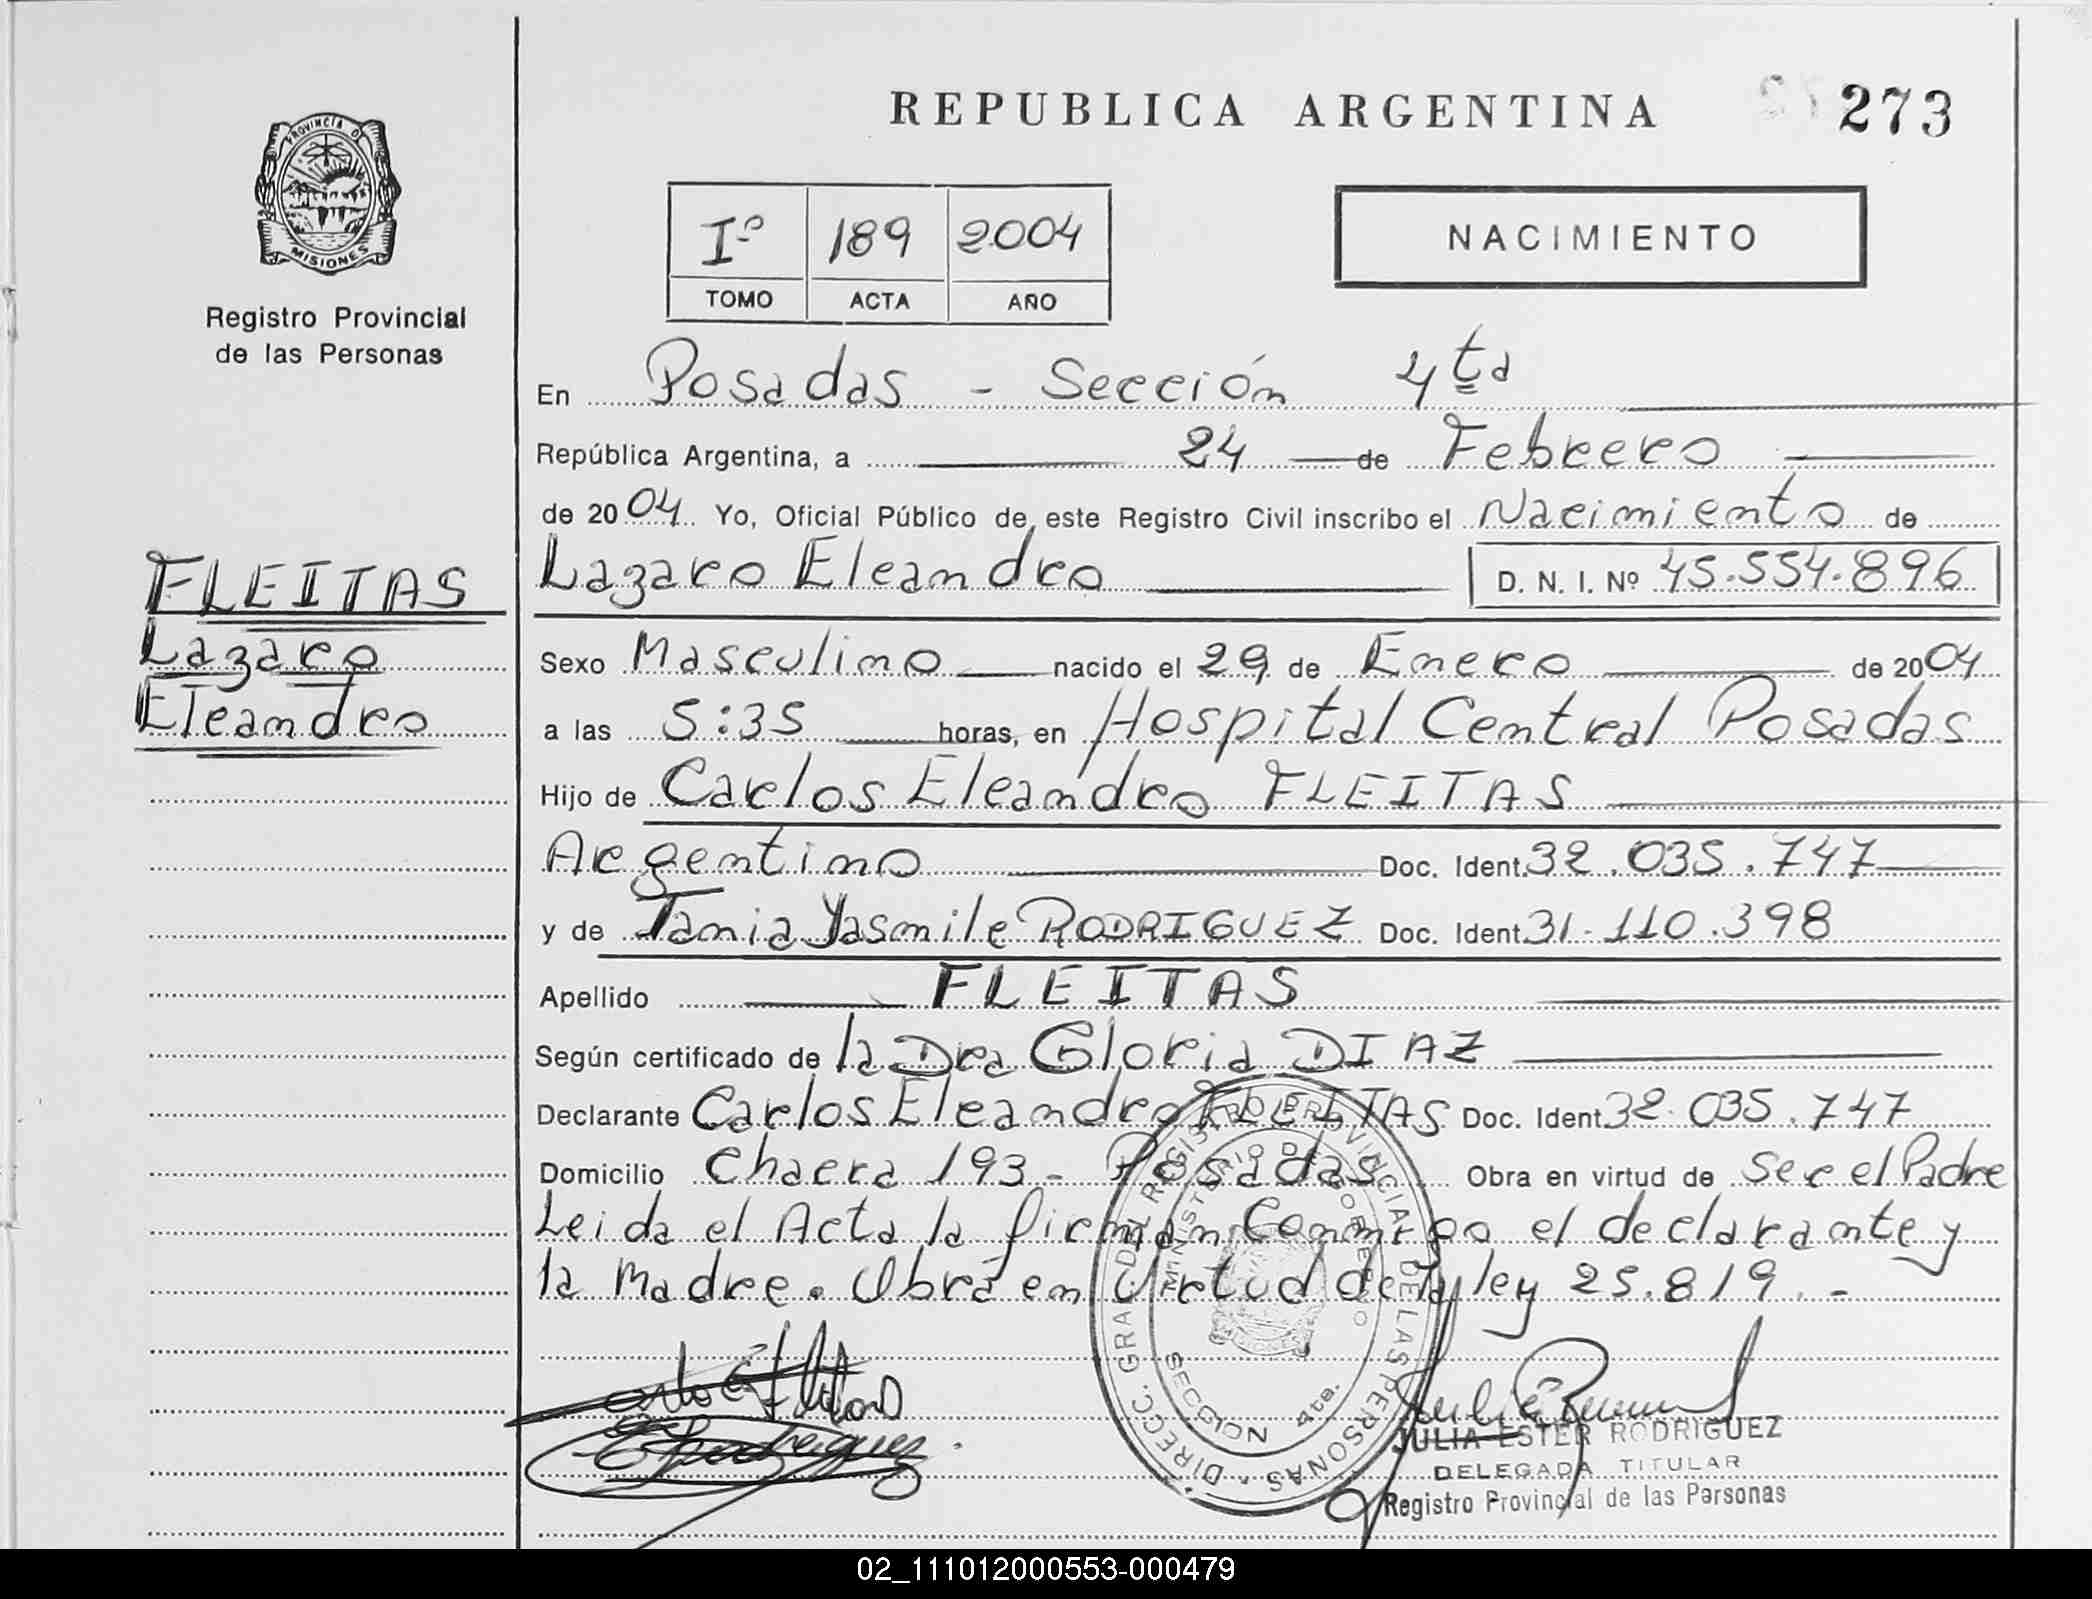 REPUBLICA ARGENTINA
273
PROVINCIA D
MISIONES
Registro Provincial
de las Personas
Iº 189 2004
TOMO ACTA AÑO
NACIMIENTO
En Posadas - Sección 4ta
República Argentina, a 24 de Febrero
de 2004 Yo, Oficial Público de este Registro Civil inscribo el Nacimiento de
FLEITAS
Lazaro
Eleandro
Lazaro Eleandro D. N. I. Nº 45.554.896
Sexo Masculino nacido el 29 de Enero de 2004
a las 5:35 horas, en Hospital Central Posadas
Hijo de Carlos Eleandro FLEITAS
Argentino Doc. Ident. 32.035.747
y de Tania Yasmile RODRIGUEZ Doc. Ident. 31.110.398
Apellido FLEITAS
Según certificado de la Dra Gloria DIAZ
Declarante Carlos Eleandro FLEITAS Doc. Ident. 32.035.747
Domicilio Chacra 193.- Posadas Obra en virtud de Ser el Padre
Leida el Acta la firman Conmigo el declarante y
la Madre. Obra en Virtud de la ley 25.819.-
DIRECC. GRAL. DEL REGISTRO PROVINCIAL DE LAS PERSONAS
MINISTERIO DE GOBIERNO
SECCION 4ta.
JULIA ESTER RODRIGUEZ
DELEGADA TITULAR
Registro Provincial de las Personas
02_111012000553-000479